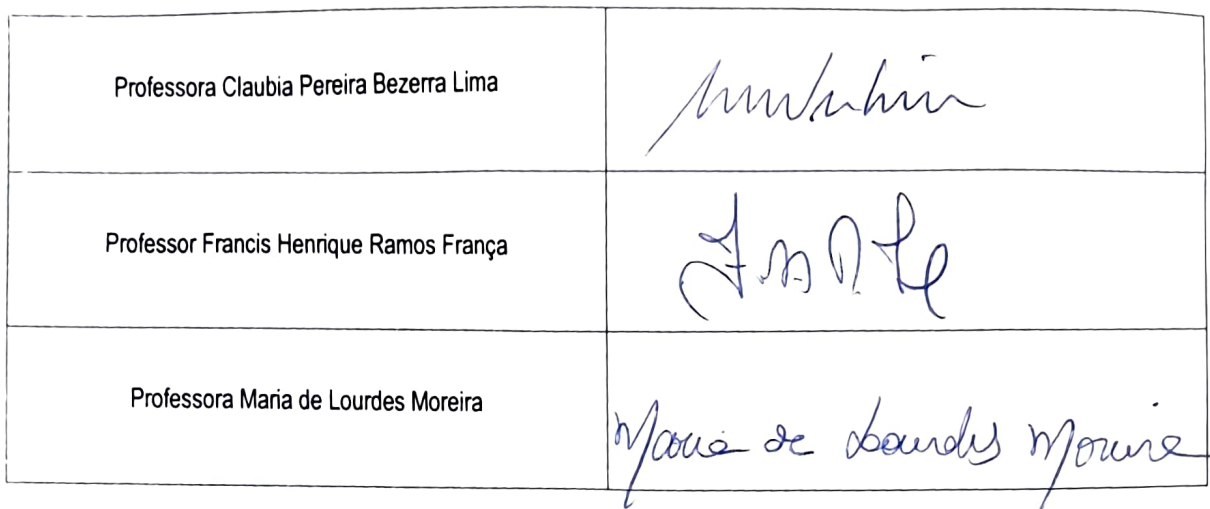 Professora Claubia Pereira Bezerra Lima
Professor Francis Henrique Ramos França
Professora Maria de Lourdes Moreira
Maria de Lourdes Moreira